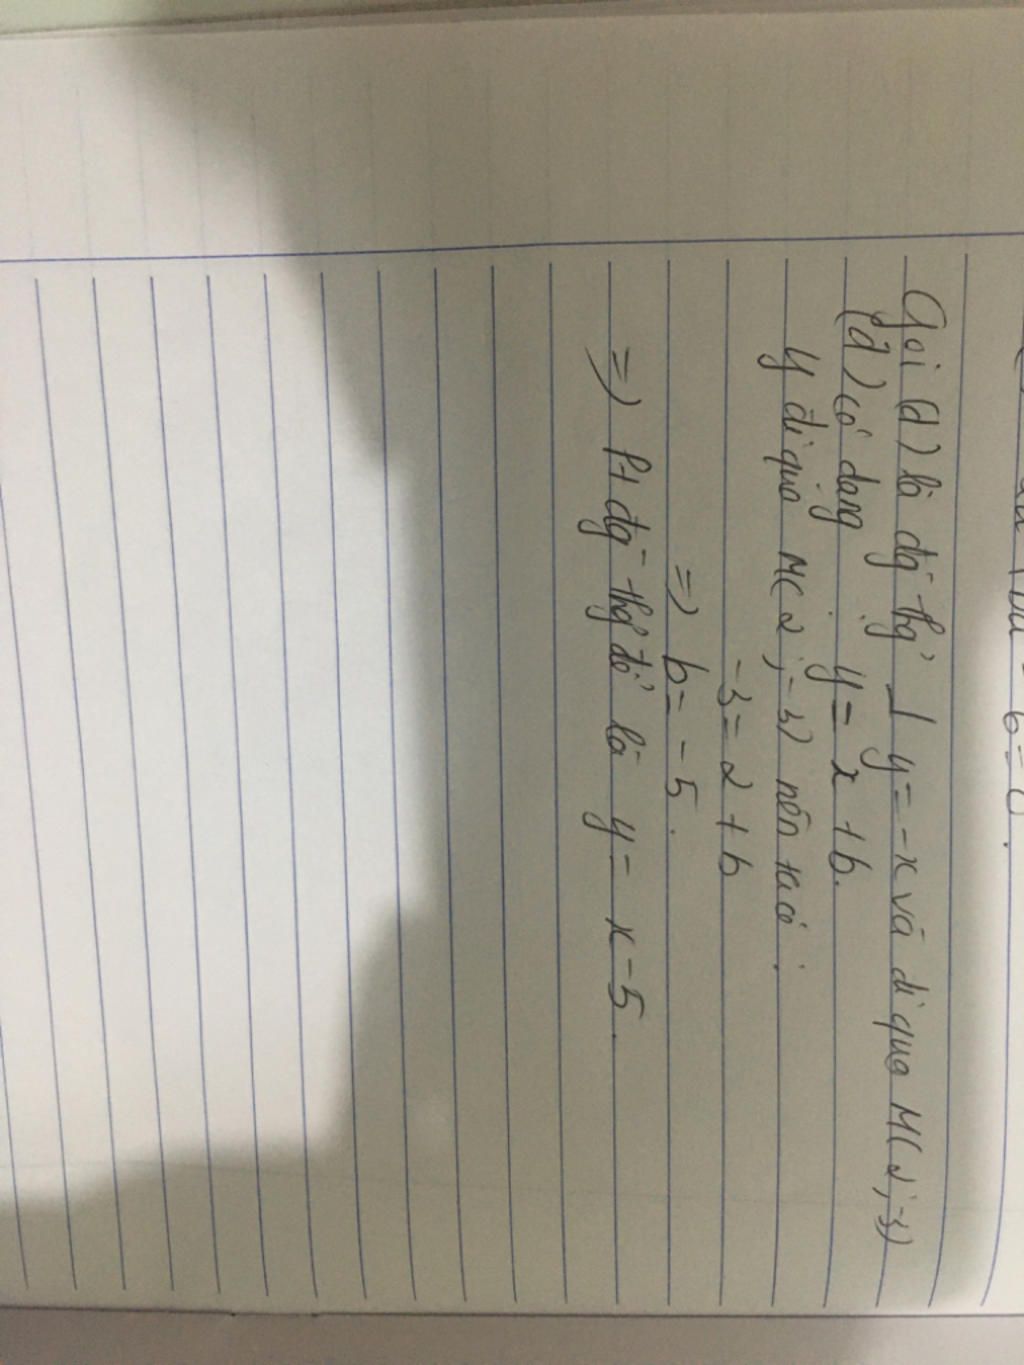 b = 0.
Gọi (d) là đg thg ⊥ y = -x và đi qua M(2;-3)
(d) có dạng y = x + b.
y đi qua M(2;-3) nên ta có.
-3 = 2 + b
=> b = -5.
=> Pt đg thg đó là y = x - 5.